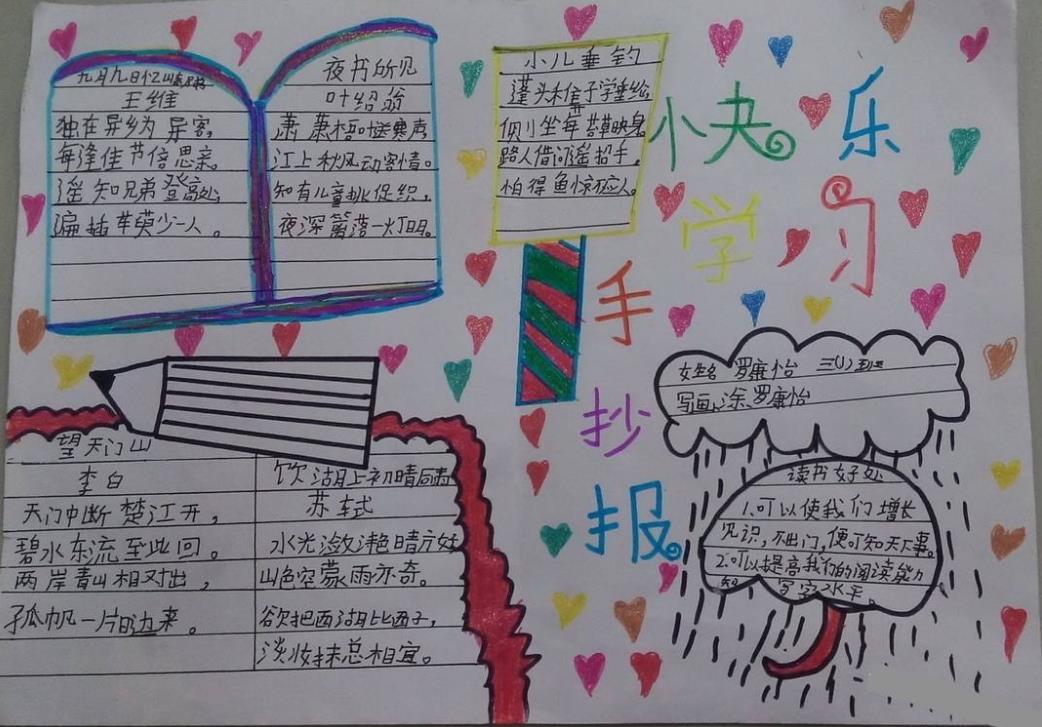 九月九日忆山东兄弟
王维
独在异乡为异客，
每逢佳节倍思亲。
遥知兄弟登高处，
遍插茱萸少一人。
夜书所见
叶绍翁
萧萧梧叶送寒声，
江上秋风动客情。
知有儿童挑促织，
夜深篱落一灯明。
小儿垂钓
蓬头稚子学垂纶，
侧坐莓苔草映身。
路人借问遥招手，
怕得鱼惊不应人。
快乐
学习
手
抄
报
望天门山
李白
天门中断楚江开，
碧水东流至此回。
两岸青山相对出，
孤帆一片日边来。
饮湖上初晴后雨
苏轼
水光潋滟晴方好
山色空蒙雨亦奇。
欲把西湖比西子，
淡妆抹总相宜。
姓名 罗康怡 三(1)班
写画、涂、罗康怡
读书好处
1.可以使我们增长
见识，不出门，便可知天下事。
2.可以提高我们的阅读能力
写字水平。